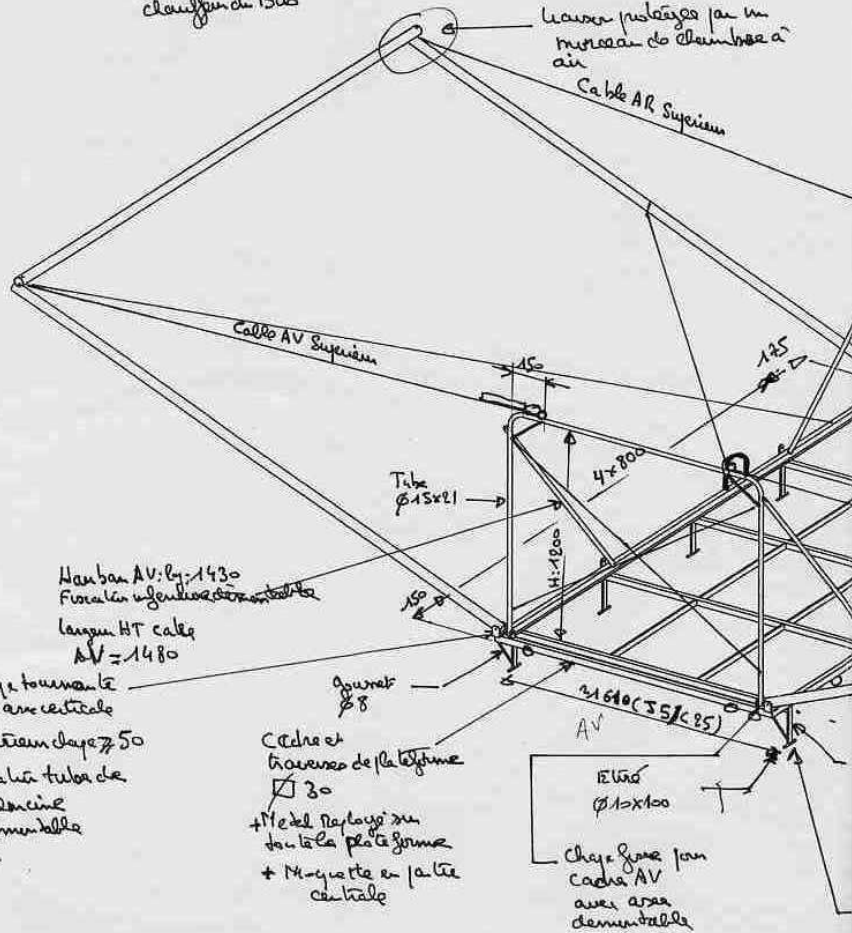 chauffeur du 1508
liaison protégée par un
morceau de chambre à
air
Cable AR Superieur
Cable AV Superieur
150
175
4x800
Tube
Ø15x21
H:1200
Hauban AV: lg: 1430
Fixation inferieure démontable
150
largeur HT cable
AV = 1480
tournante
axe verticale
50
tube de
gousset
Ø8
AV
Cadre et
traverses de plateforme
□ 30
+ Metal Deployé sur
toute la plateforme
+ Moquette en partie
centrale
Etiré
Ø10x100
Chape fixe pour
cadre AV
avec axes
demontable